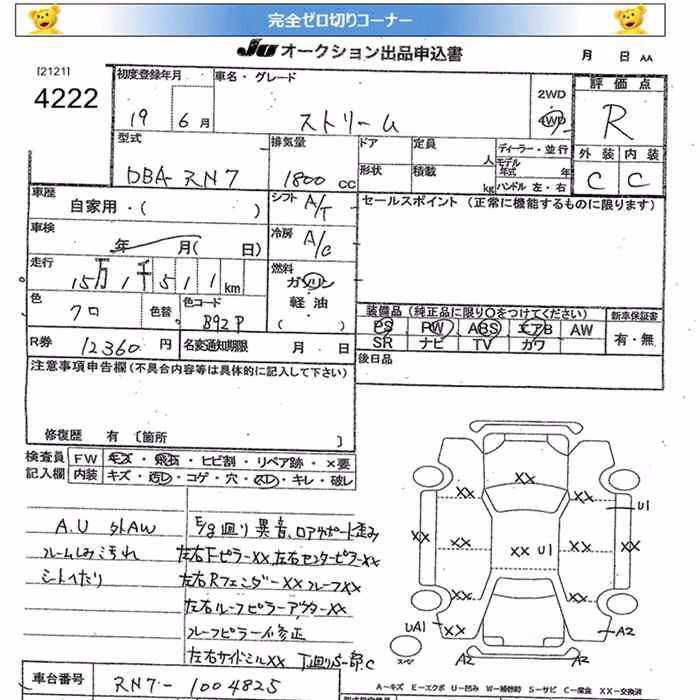 完全ゼロ切りコーナー
JU オークション出品申込書 月 日 AA
[2121]
4222
初度登録年月 車名・グレード
19 6月 ストリーム
2WD
4WD
評価点
R
型式 排気量 ドア 定員 人 ディーラー・並行
外装 内装
DBA-RN7 1800 CC 形状 積載 kg モデル年式 年
ハンドル 左・右
C C
車歴 シフト A/T セールスポイント (正常に機能するものに限ります)
自家用・( )
車検 冷房 A/C
年 月( 日)
走行 燃料
15万1千511km ガソリン
軽油
( )
色 色替 色コード
クロ B92P
装備品 (純正品に限り○をつけてください) 新車保証書
PS PW ABS エアB AW 有・無
SR ナビ TV カワ
R券 12360円 名変通知期限 月 日
後日品
注意事項申告欄(不具合内容等は具体的に記入して下さい)
修復歴 有 [箇所 ]
検査員 FW キズ・飛石・ヒビ割・リペア跡・×要
記入欄 内装 キズ・汚レ・コゲ・穴・スレ・キレ・破レ
A.U 外AW
ルームしみ汚れ
シートへたり
E/g廻り異音、ロアサポート歪み
左右FピラーXX、左右センターピラーXX
左右RフェンダーXX ルーフXX
左右ルーフピラーアウターXX
ルーフピラーイ修正
左右サイドシルXX 下廻りS一部C
XX
XX XX U1
XX XX XX U1 XX XX
XX XX
UA1 XX A2
スペア A2 A2
車台番号 RN7-1004825
A－キズ E－エクボ U－凹み W－補修跡 S－サビ C－腐食 XX－交換済